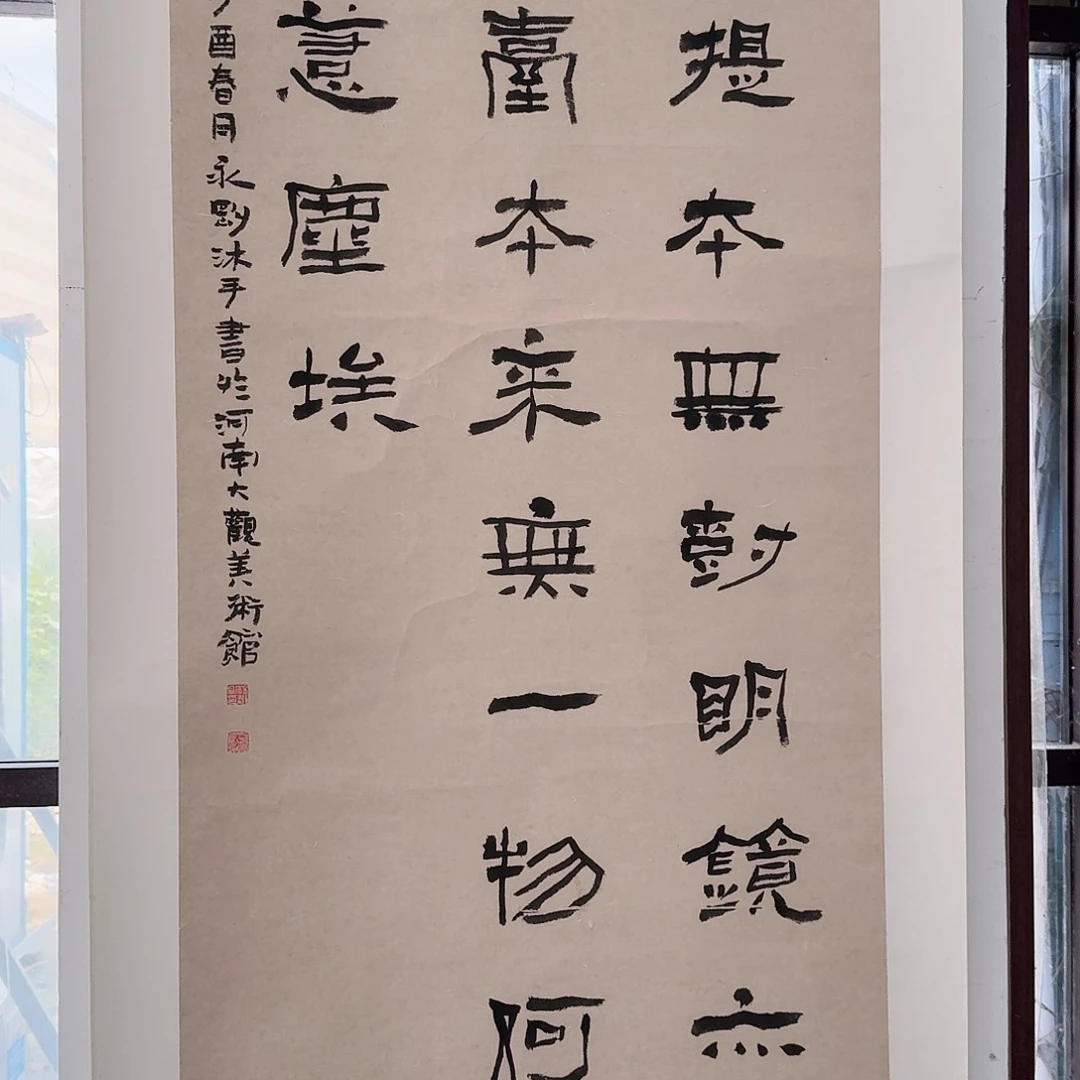 提本無尌明鏡亦
臺本來無一物何
惹塵埃
酉春月永沐手書於河南大觀美術館